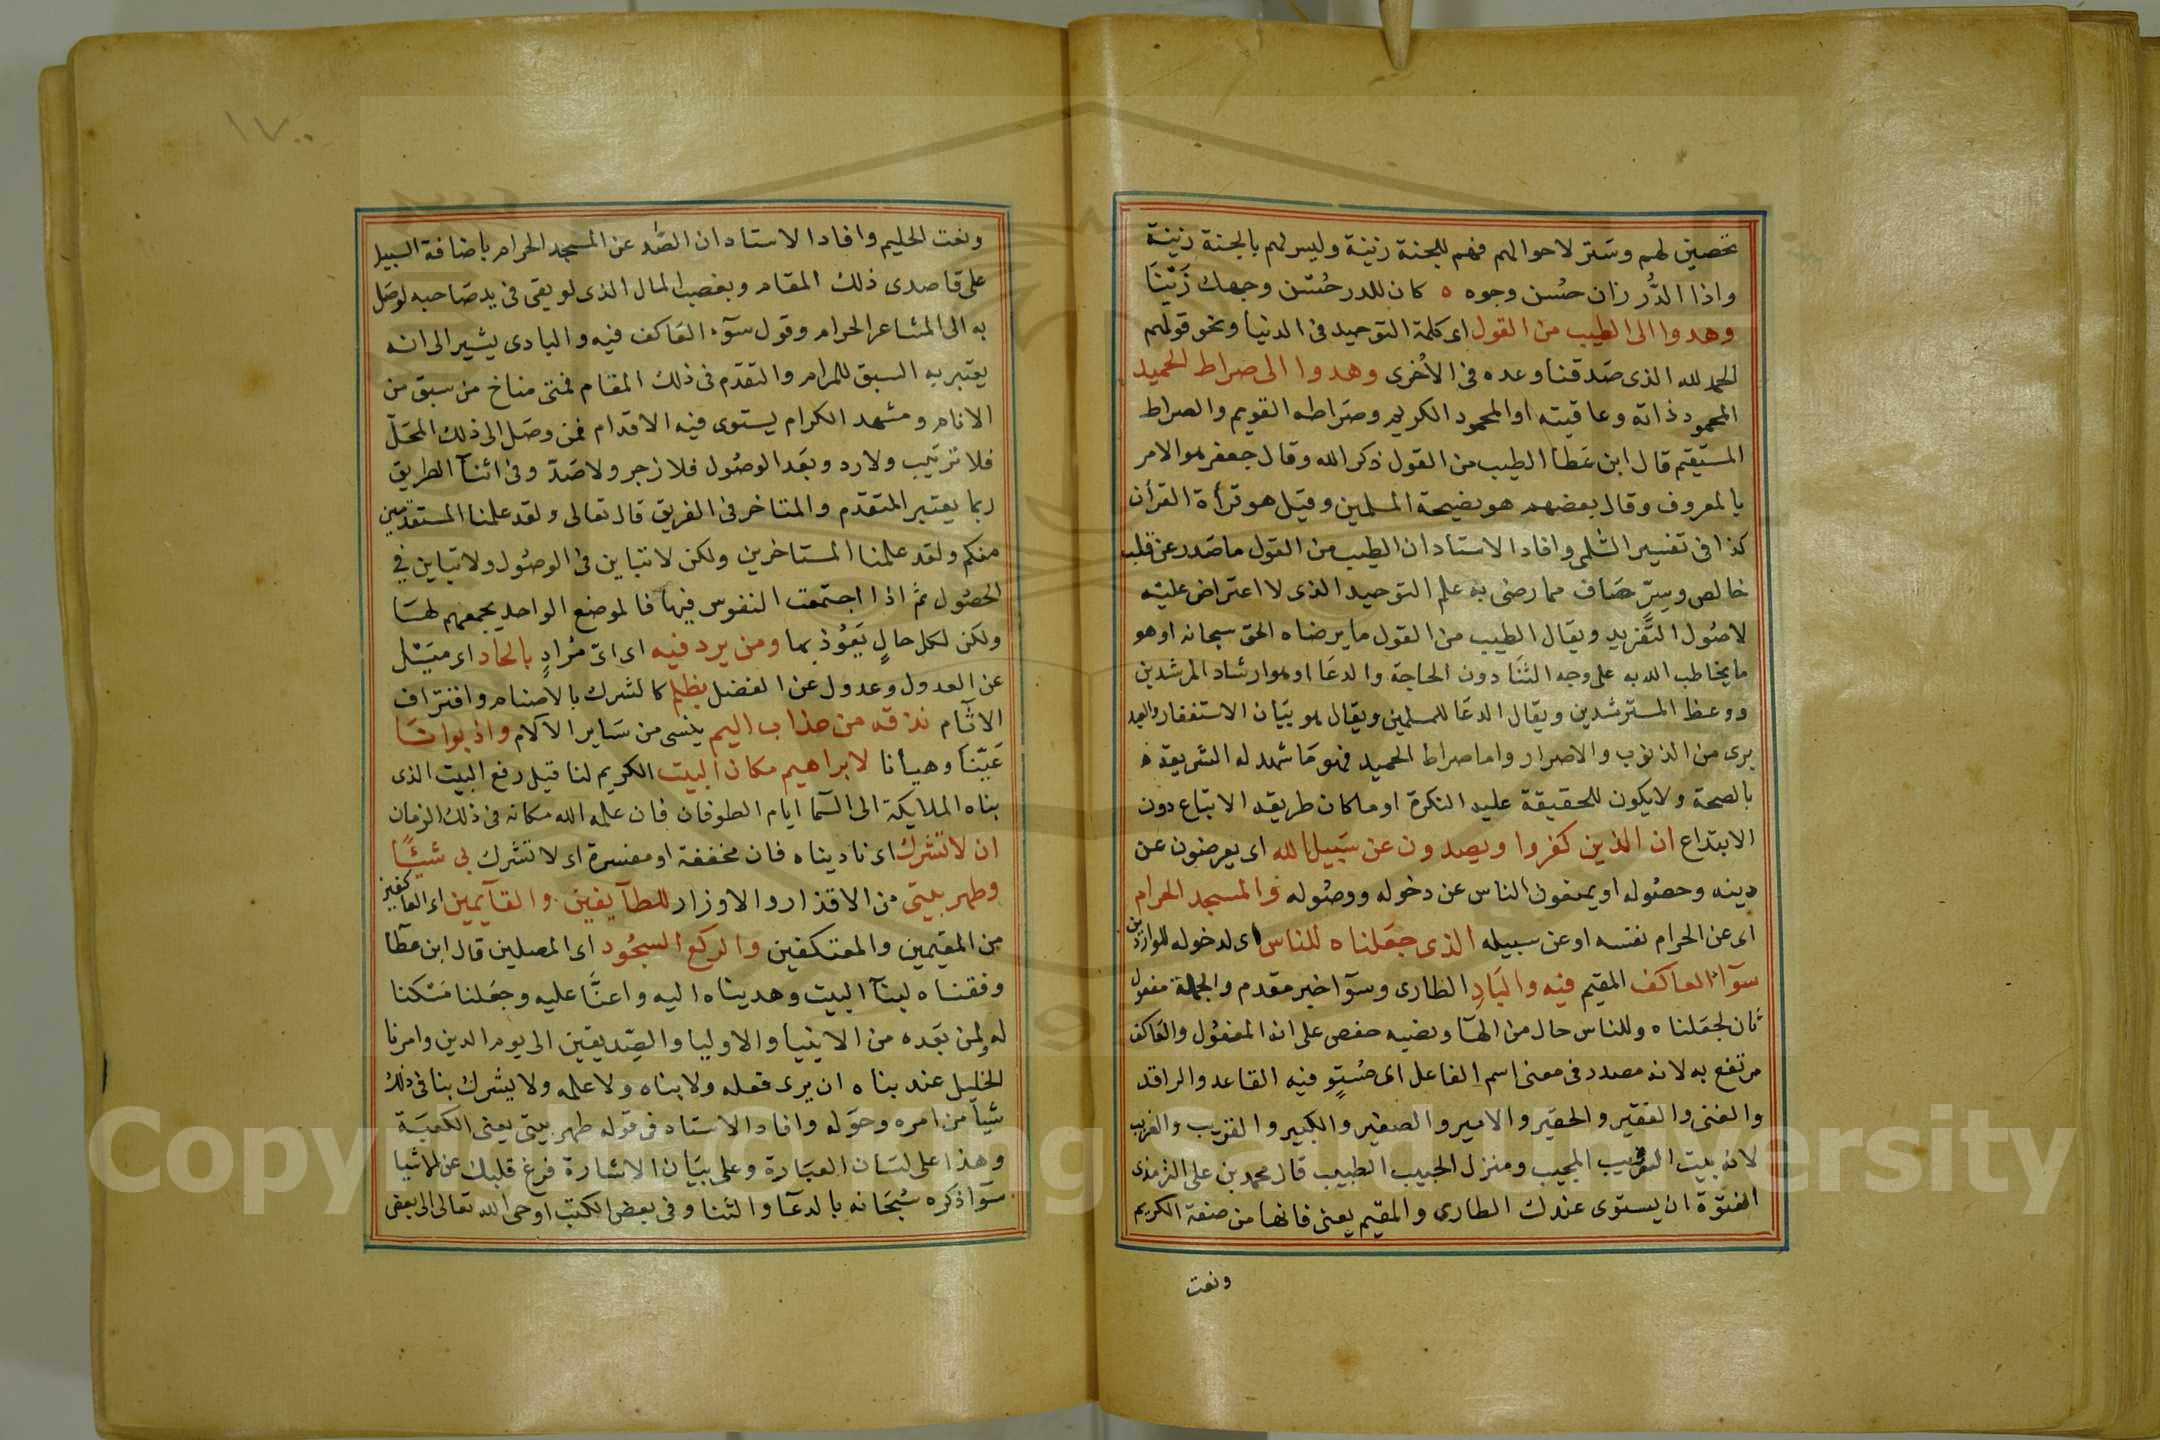 تحصين لهم وستر لاحوالهم فهم للجنة زينة وليس لهم بالجنة زينة
واذا الدُّر زان حسُن وجوه ٥ كان للدر حُسن وجهك زَيْنَا
وهدوا الى الطيب من القول اى كلمة التوحيد فى الدنيا ونحو قولهم
الحمد لله الذى صدقنا وعده فى الأخرى وهدوا الى صراط الحميد
المحمود ذاته وعاقبته او المحمود الكريم وصراطه القويم والصراط
المستقيم قال ابن عطا الطيب من القول ذكر الله وقال جعفر هو الامر
بالمعروف وقال بعضهم هو نصيحة المسلمين وقيل هو قرأة القرأن
كذا فى تفسير السُّلمى وافاد الاستاد ان الطيب من القول ما صدر عن قلب
خالص وسِرٍّ صاف مما رضى به علم التوحيد الذى لا اعتراض عليه
لاصول التَّفريد ويقال الطيب من القول ما يرضاه الحق سبحانه او هو
ما يخاطب الله به على وجه الثنا دون الحاجة والدعا او هو ارشاد المرشدين
ووعظ المسترشدين ويقال الدعا للمسلمين ويقال هو بيان الاستغفار والعبد
برى من الذنوب والاصرار واما صراط الحميد فهو ما شهد له الشريعة
بالصحة ولا يكون للحقيقة عليه النكرة او ما كان طريقه الاتباع دون
الابتداع ان الذين كفروا ويصدون عن سبيل الله اى يعرضون عن
دينه وحصوله او يمنعون الناس عن دخوله ووصوله والمسجد الحرام
اى عن الحرام نفسه او عن سبيله الذى جعلناه للناس اى لدخوله للواردين
سوآء العاكف المقيم فيه والبَادِ الطارى وسوآ خبر مقدم والجملة مفعول
ثان لجعلناه وللناس حال من الهآ ونصبه حفص على انه المفعول والعاكف
مرتفع به لانه مصدر فى معنى اسم الفاعل اى مُستوٍ فيه القاعد والراقد
والغنى والفقير والحقير والامير والصغير والكبير والقريب والغريب
لانه بيت القريب المجيب ومنزل الحبيب الطبيب قال محمد بن على الترمذى
الفتوّة ان يستوى عندك الطارى والمقيم يعنى فانها من صنعة الكريم
ونعت
١٧٠٠
ونعت الحليم وافاد الاستاد ان الصَّد عن المسجد الحرام باضافة السبيل
على قاصدى ذلك المقام وبغصب المال الذى لو بقى فى يد صاحبه لوصل
به الى المشاعر الحرام وقول سوآء العاكف فيه والبادى يشير الى انه
يعتبر به السبق للمرام والتقدم فى ذلك المقام فمنى مناخ من سبق من
الانام ومشهد الكرام يستوى فيه الاقدام فمن وصل الى ذلك المحلّ
فلا ترتيب ولا رد وبعد الوصول فلا زجر ولا صَدّ وفى اثنآ الطريق
ربما يعتبر المتقدم والمتاخر فى الفريق قال تعالى ولقد علمنا المستقدمين
منكم ولقد علمنا المستاخرين ولكن لا تباين فى الوصول ولا تباين فى
الحصول ثم اذا اجتمعت النفوس فيها فالموضع الواحد يجمعهم لها
ولكن لكل حالٍ يعوذ بها ومن يرد فيه اى اىّ مُرادٍ بالحاد اى ميل
عن العدول وعدول عن الفضل بظلم كالشرك بالاصنام واقتراف
الاثآم نذقه من عذاب اليم ينسى من ساير الآلام واذ بوانا
عَيّنا وهيأنا لابراهيم مكان البيت الكريم لنا قبل رفع البيت الذى
بناه الملايكة الى السّما ايام الطوفان فان علمه الله مكانه فى ذلك الزمان
ان لا تشرك اى ناديناه فان مخففة او مفسرة اى لا تشرك بى شيئًا
وطهر بيتى من الاقذار والاوزار للطآيفين والقآيمين اى العاكفين
من المقيمين والمعتكفين والركع السجُود اى المصلين قال ابن عطآ
وفقناه لبنآ البيت وهديناه اليه واعنَّا عليه وجعلنا مَسْكنا
له ولمن بعده من الانبيا والاوليا والصِّديقين الى يوم الدين وامرنا
الخليل عند بناه ان يرى فعله ولا بناه ولا علمه ولا يشرك بنا فى ذلك
شيأ من امره وحَوله وافاد الاستاد فى قوله طهر بيتى يعنى الكعبَة
وهذا على لسَان العبَارة وعلى بيَان الاشارة فرغ قلبك عن الاشيا
سوَا ذكره سُبحَانه بالدعآ والثنا وفى بعض الكتب اوحى الله تعالى الى بعض
Copyright © King Saud University